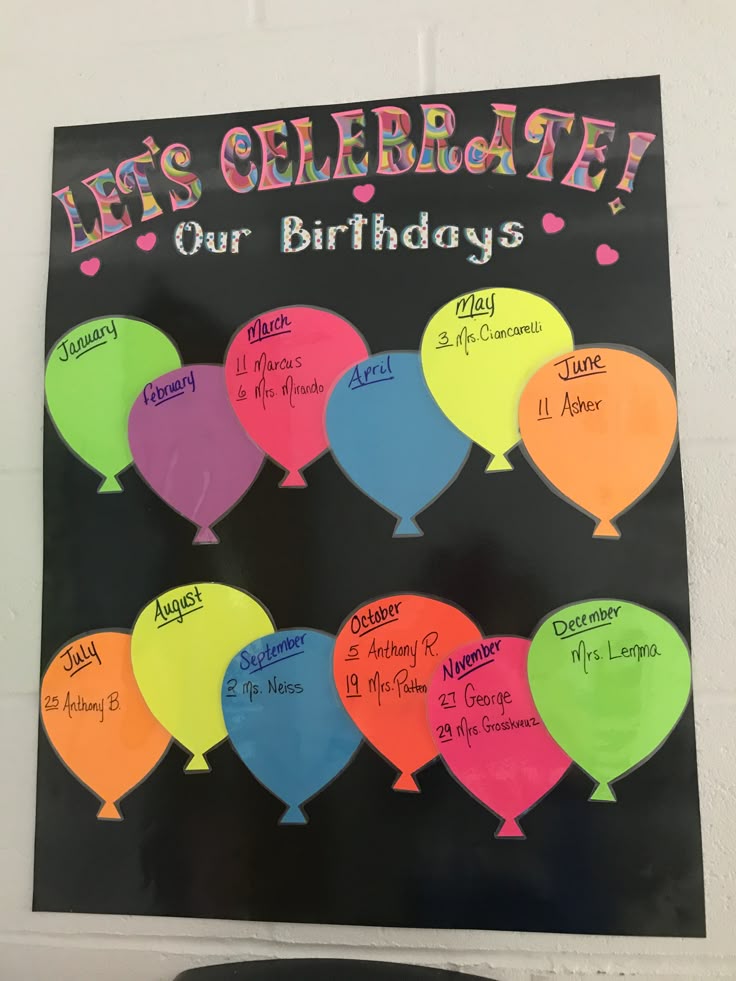 LET'S CELEBRATE!
Our Birthdays
January
February
March
11 Marcus
6 Mrs. Mirando
April
May
3 Mrs. Ciancarelli
June
11 Asher
July
25 Anthony B.
August
September
2 Ms. Neiss
October
5 Anthony R.
19 Mrs. Patten
November
27 George
29 Mrs. Grosskreuz
December
Mrs. Lerma